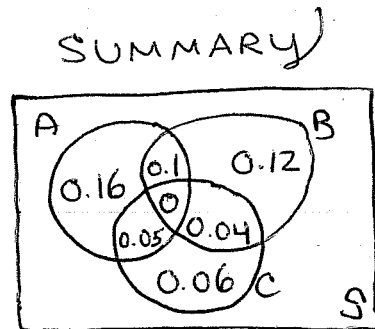 SUMMARY
A
B
0.16
0.1
0.12
0
0.05
0.04
0.06
C
S